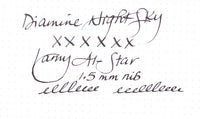 Diamine Night Sky
xxxxxx
Lamy Al-Star
1.5 mm nib